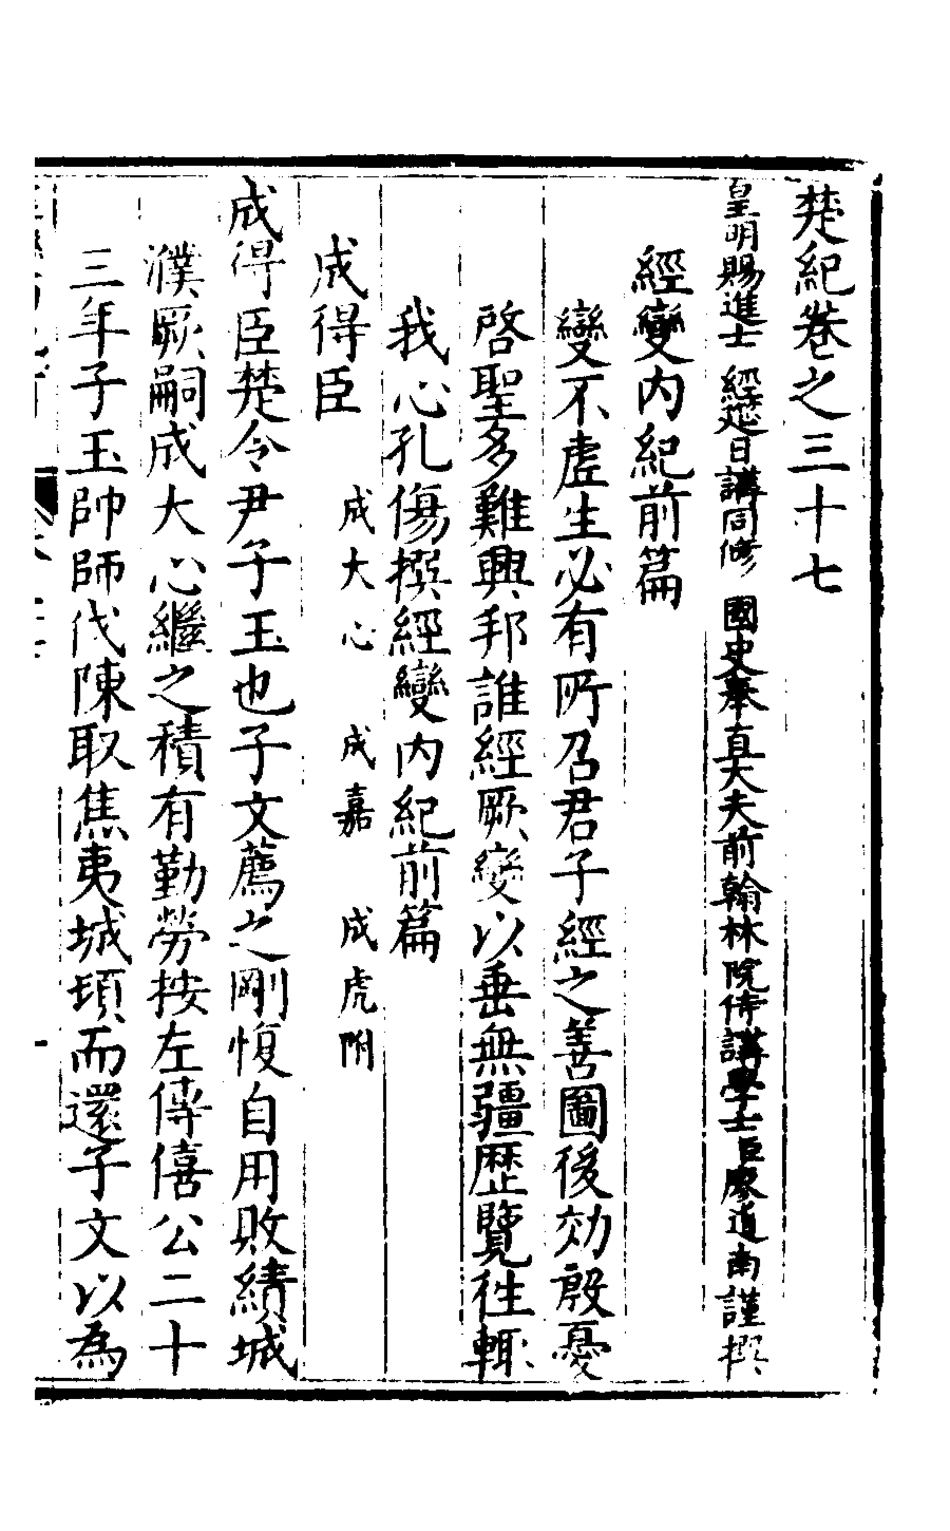 楚紀卷之三十七
皇明賜進士 經筵日講同修 國史奉直大夫前翰林院侍講學士臣廖道南謹撰
經變內紀前篇
變不虛生必有所召君子經之善圖後効殷憂
啓聖多難興邦誰經厥變以垂無疆歷覽往輙
我心孔傷撰經變內紀前篇
成得臣 成大心 成嘉 成虎附
成得臣楚令尹子玉也子文薦之剛愎自用敗績城
濮厥嗣成大心繼之積有勤勞按左傳僖公二十
三年子玉帥師伐陳取焦夷城頓而還子文以為